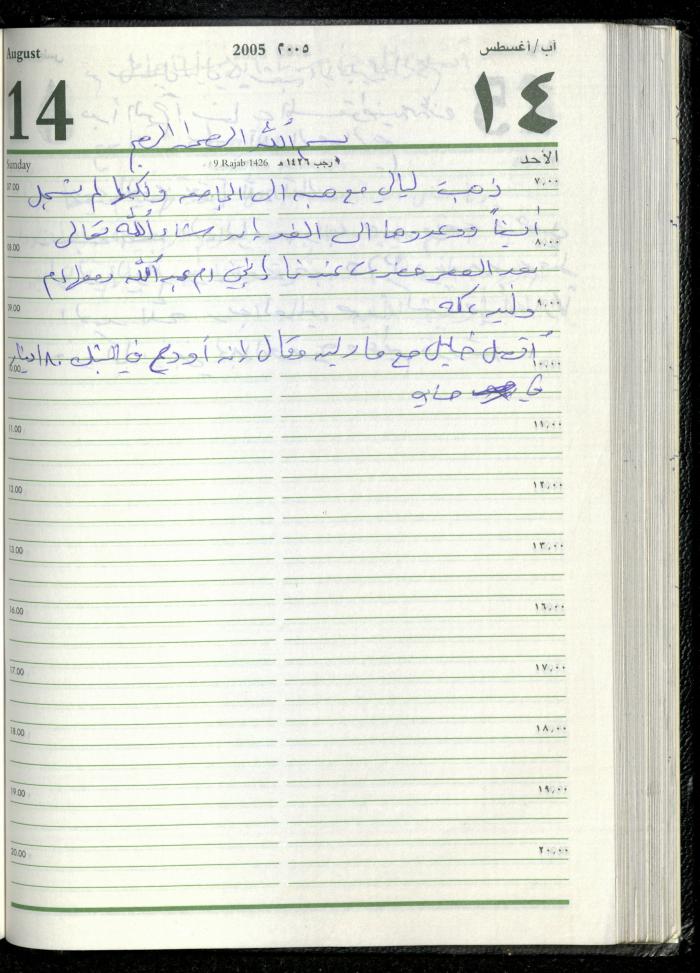 August 2005 ٢٠٠٥ آب/أغسطس
14 ١٤
بسم الله الرحمن الرحيم
Sunday 9 Rajab 1426 ٩ رجب ١٤٢٦ هـ الأحد
07.00 ذهبت ليالي مع هبه الى الجامعه ولكنها لم تسجل ٧,٠٠
أيضاً ووعدوها الى الغد إن شاء الله تعالى
08.00 ٨,٠٠
بعد العصر حضرت عندنا أختي ام عبد الله ومعها ام
09.00 وليد عكه ٩,٠٠
أتصل خليل مع وقال إنه أودع في البنك ٨٠ دينار
10.00 ١٠,٠٠
في
11.00 ١١,٠٠
12.00 ١٢,٠٠
13.00 ١٣,٠٠
16.00 ١٦,٠٠
17.00 ١٧,٠٠
18.00 ١٨,٠٠
19.00 ١٩,٠٠
20.00 ٢٠,٠٠